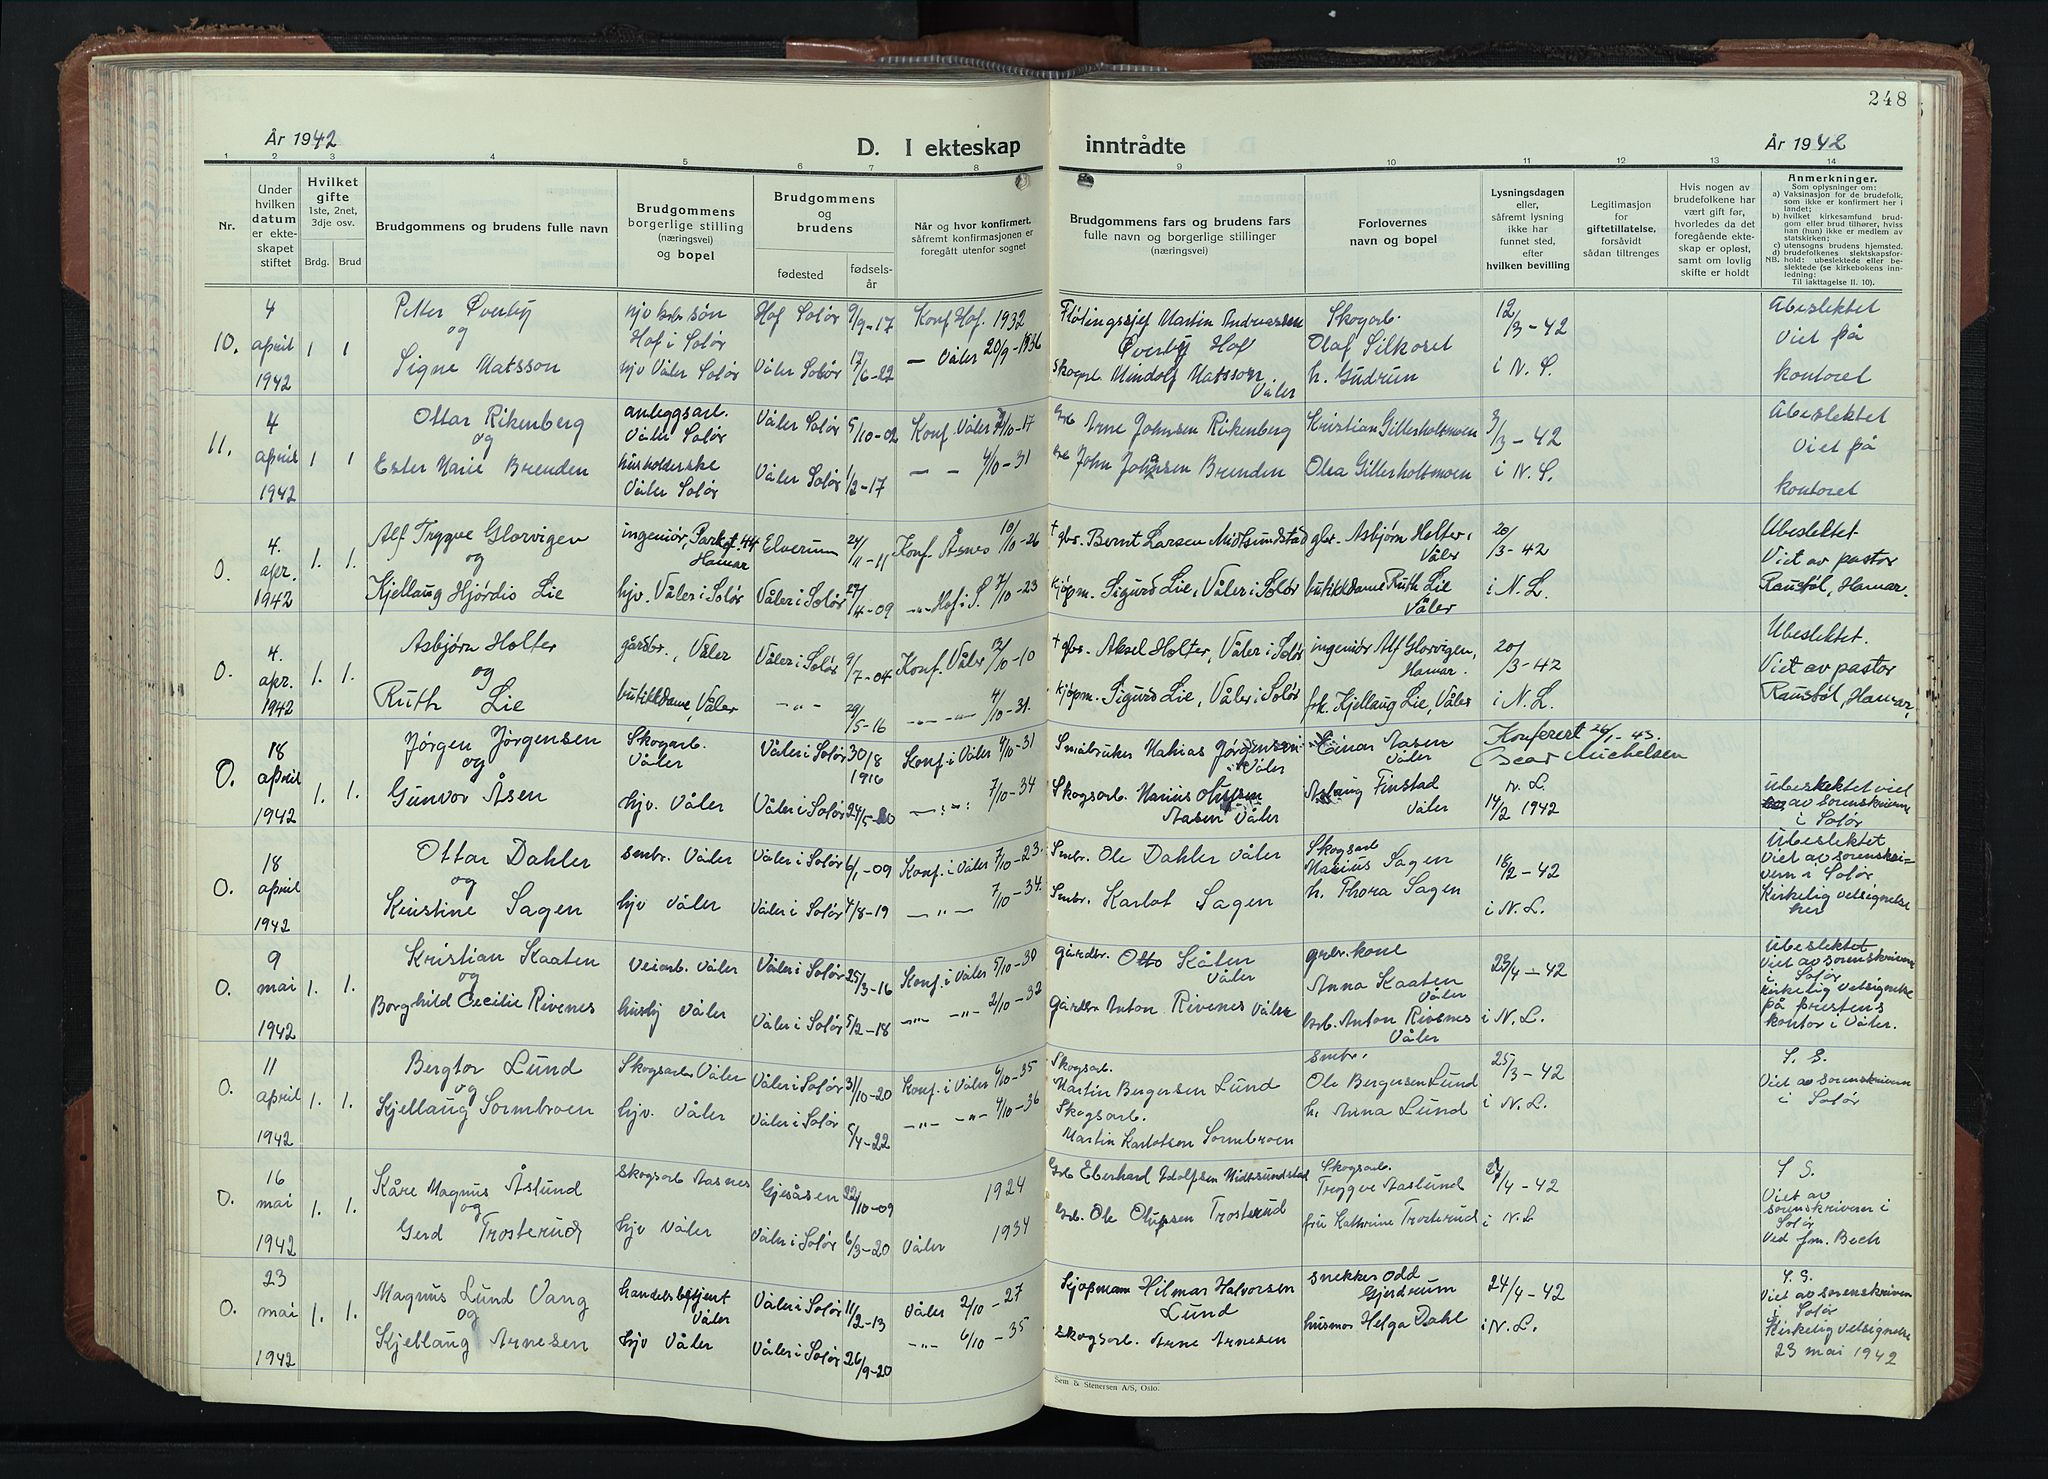 248
År 1942
D. I ekteskap inntrådte
År 1942
1 2 3 4 5 6 7 8 9 10 11 12 13 14
Nr.
Under hvilken datum er ekteskapet stiftet
Hvilket gifte
1ste, 2net, 3dje osv.
Brdg. Brud
Brudgommens og brudens fulle navn
Brudgommens borgerlige stilling (næringsvei) og bopel
Brudgommens og brudens
fødested
fødselsår
Når og hvor konfirmert, såfremt konfirmasjonen er foregått utenfor sognet
Brudgommens fars og brudens fars fulle navn og borgerlige stillinger (næringsvei)
Forlovernes navn og bopel
Lysningsdagen eller, såfremt lysning ikke har funnet sted, efter hvilken bevilling
Legitimasjon for giftetillatelse, forsåvidt sådan tiltrenges
Hvis nogen av brudefolkene har vært gift før, hvorledes da det foregående ekteskap er opløst, samt om lovlig skifte er holdt
Anmerkninger.
Som oplysninger om:
a) Vaksinasjon for de brudefolk, som ikke er konfirmert her i landet;
b) hvilket kirkesamfund brudgom eller brud tilhører, hviss han (hun) ikke er medlem av statskirken;
c) utensogns brudens hjemsted.
d) brudefolkenes slektskapsforhold: ubeslektede eller beslektede (se kirkebokens innledning;
NB.
Til iakttagelse II. 10).
10. 4 april 1942 1 1
Petter Øverby og Signe Matsson
Hof i Solør
hjv Våler Solør
Hof Solør 9/9-17
Våler Solør 17/6-22
Konf Hof. 1932
— Våler 20/9-1936
Fløtingssjef Martin Andreassen Øverby Hof
Skogarb. Mindolf Matsson Våler
Skogarb. Olaf Silkoset
h. Gudrun
12/3-42 i N. L.
Ubeslektet Viet på kontoret
11. 4 april 1942 1 1
Ottar Rikenberg og Ester Marie Brenden
anleggsarb. Våler Solør
husholderske Våler Solør
Våler Solør 5/10-02
Våler Solør 1/2-17
Konf. Våler 7/10-17
— — 4/10-31
Arne Johnsen Rikenberg
John Johnsen Brenden
Kristian Gillerholtmoen
Olea Gillerholtmoen
3/3-42 i N. L.
Ubeslektet Viet på kontoret
0. 4. apr. 1942 1. 1.
Alf Trygve Glorvigen og Kjellaug Hjørdis Lie
ingeniør, Parkgt. 44 Hamar
hjv. Våler i Solør
Elverum 24/11-11
Våler i Solør 27/4-09
Konf. Åsnes 10/10-26
-"- Hof i S. 7/10-23
† gbr. Bernt Larsen Midtsundstad
kjøpm. Sigurd Lie, Våler i Solør
gbr. Asbjørn Holter, Våler
butikkdame Ruth Lie Våler
20/3-42 i N. L.
Ubeslektet Viet av pastor Raustøl, Hamar.
0. 4. apr. 1942 1. 1.
Asbjørn Holter og Ruth Lie
gårdbr., Våler
butikkdame, Våler
Våler i Solør 9/7-04
-"- 29/5-16
Konf. Våler 13/10-10
-"- -"- 4/10-31.
† gbr. Aksel Holter, Våler i Solør
kjøpm. Sigurd Lie, Våler i Solør
ingeniør Alf Glorvigen, Hamar.
frk. Kjellaug Lie, Våler
20/3-42 i N. L.
Ubeslektet. Viet av pastor Raustøl, Hamar,
0. 18 april 1942 1. 1.
Jørgen Jørgensen og Gunvor Åsen
Skogarb. Våler
hjv. Våler
Våler i Solør 30/8 1916
Våler i Solør 24/5-20
Konf. i Våler 4/10-31
7/10-34
Småbruker Mathias Jørgensen i Våler
Skogsarb. Marius Olufsen Aasen Våler
Einar Aasen Våler
Aslaug Finstad Våler
Konferert 26/1-43. Oscar Michelsen
N. L. 14/2 1942
Ubeslektet viet av sorenskriveren i Solør
0. 18 april 1942
Ottar Dahler og Kristine Sagen
smbr. Våler
hjv Våler
Våler i Solør 6/1-09
Våler i Solør 4/8-19
Konf. i Våler 7/10-23.
—"— 7/10-34.
Smbr. Ole Dahler Våler
Smbr. Karlot Sagen
Skogsarb Marius Sagen
h. Thora Sagen
18/2-42 i N. L.
Ubeslektet Viet av sorenskrivern i Solør Kirkelig velsignelse her
0. 9 mai 1942 1. 1.
Kristian Kaaten og Borghild Cecilie Rivenes
Veiarb. Våler
husbj Våler
Våler i Solør 25/3-16
Våler i Solør 5/2-18
Konf. i Våler 5/10-30
-"- -"- 2/10-32
gårdbr. Otto Kåten Våler
gårdbr Anton Rivenes Våler
grbr. kone Anna Kaaten Våler
Anton Rivenes Våler
23/4-42 i N. L.
Ubeslektet Viet av sorenskriveren i Solør Kirkelig velsignelse på prestens kontor i Våler.
0. 11 april 1942 1. 1.
Bergtor Lund og Kjellaug Sormbroen
Skogsarb Våler
hjv. Våler
Våler i Solør 31/10-20
Våler i Solør 5/4-22
Konf. i Våler 6/10-35
-"- -"- 4/10-36
Skogsarb. Martin Bergersen Lund
Skogsarb. Martin Karlotsen Sormbroen
smbr. Ole Bergersen Lund
h. Anna Lund
25/3-42 i N. L.
S. S. Viet av sorenskriveren i Solør
0. 16 mai 1942 1. 1.
Kåre Magnus Åslund og Gerd Trosterud
skogsarb Aasnes
hjv Våler
Gjesåsen 22/10-09
Våler i Solør 6/3-20
1924
Våler 1934
Eberhard Adolfsen Midtsundstad
Ole Olufsen Trosterud
Skogsarb. Trygve Aaslund
fru Kathrine Trosterud
/4-42 i N. L.
S. S. Viet av sorenskriveren i Solør Ved fm. Bech
0. 23 mai 1942 1. 1.
Magnus Lund Vang og Kjellaug Arnesen
handelsbetjent Våler
hjv Våler
Våler i Solør 11/2-13
Våler i Solør 26/9-20
Våler 2/10-27
-"- 6/10-35
Kjøpmann Hilmar Halvorsen Lund
skogsarb. Arne Arnesen
snekker Odd Gjerdrum
husmor Helga Dahl
24/4-42 i N. L.
S. S. Viet av sorenskriveren i Solør Kirkelig velsignelse 23 mai 1942
Sem & Stenersen A/S, Oslo.